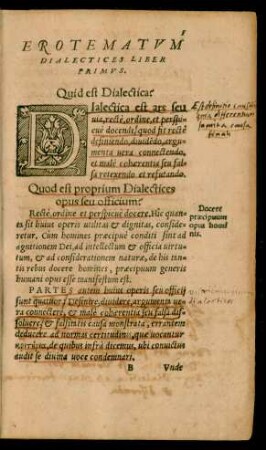 EROTEMATVM
DIALECTICES LIBER
PRIMVS.
Quid est Dialectica?
Dialectica est ars seu
uia, recte, ordine, et perspicue
docendi, quod fit recte
definiendo, diuidendo, argumenta
uera connectendo,
et male coherentia seu falsa
retexendo et refutando.
Quod est proprium Dialectices
opus seu officium?
Recte, ordine et perspicue docere. Hic quantus
sit huius operis utilitas et dignitas, consideretur.
Cum homines præcipue conditi sint ad
agnitionem Dei, ad intellectum & officia uirtutum,
& ad considerationem naturæ, de his tantis
rebus docere homines, præcipuum generis
humani opus esse manifestum est.
Docere
præcipuum
opus homi
nis.
PARTES autem huius operis seu officij
sunt quatuor: Definire, diuidere, argumenta uera
connectere, & male coherentia seu falsa dissoluere,
& falsitatis causa monstrata, errantem
deducere ad normas certitudinis, quæ uocantur
κριτήρια, de quibus infra dicemus, ubi conuictus
audit se diuina uoce condemnari.
B Vnde